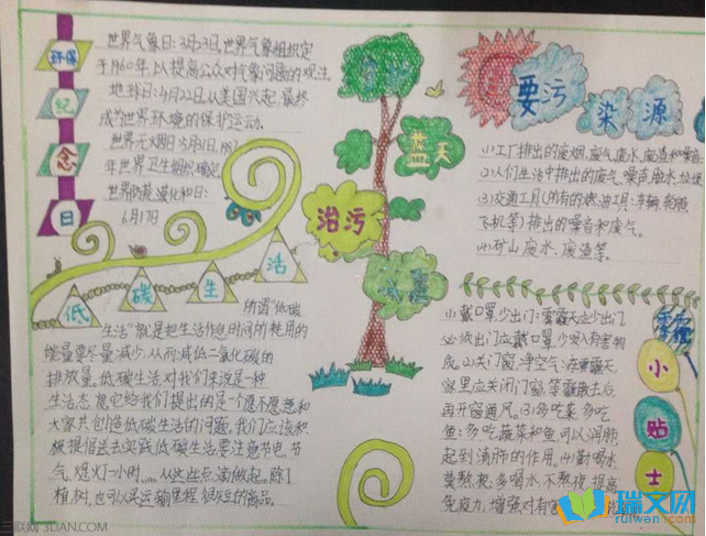 环保
纪
念
日
世界气象日:3月23日,世界气象组织定
于1960年,以提高公众对气象问题的观注.
地球日:4月22日,从美国兴起,最终
成为世界环境的保护运动.
世界无烟日:5月31日,1987
年世界卫生组织确定.
世界防荒漠化和日:
6月17日
低
碳
生
活
所谓"低碳
生活"就是把生活作息时间所耗用的
能量要尽量减少,从而减低二氧化碳的
排放量,低碳生活对我们来说是一种
生活态度,它给我们提出的是个愿不愿意和
大家共创造低碳生活的问题,我们应该积
极提倡去实践低碳生活要注意节电、节
气、熄灯一小时......从这些点滴做起。除了
植树,也可以买运输里程很短的商品。
蓝天
治污
要污
染源
(1)工厂排出的废烟、废气、废水、废渣和噪音;
(2)人们生活中排出的废气、噪声、脏水、垃圾
(3)交通工具(所有的燃油工具:车辆、轮船
飞机等)排出的噪音和废气。
(4)矿山废水、废渣等。
雾霾
小
贴
士
(1)戴口罩少出门:雾霾天应少出门
必须出门应戴口罩,少吸入有害物
质。(2)关门窗,净空气:在雾霾天,
家里应关闭门窗,等雾霾散去后,
再开窗通风。(3)多吃菜多吃
鱼:多吃蔬菜和鱼可以润肺,
起到清肺的作用。(4)勤喝水
莫熬夜:多喝水,不熬夜,提高
免疫力,增强对有害
三联网 3LIAN.COM
瑞文网
ruiwen.com